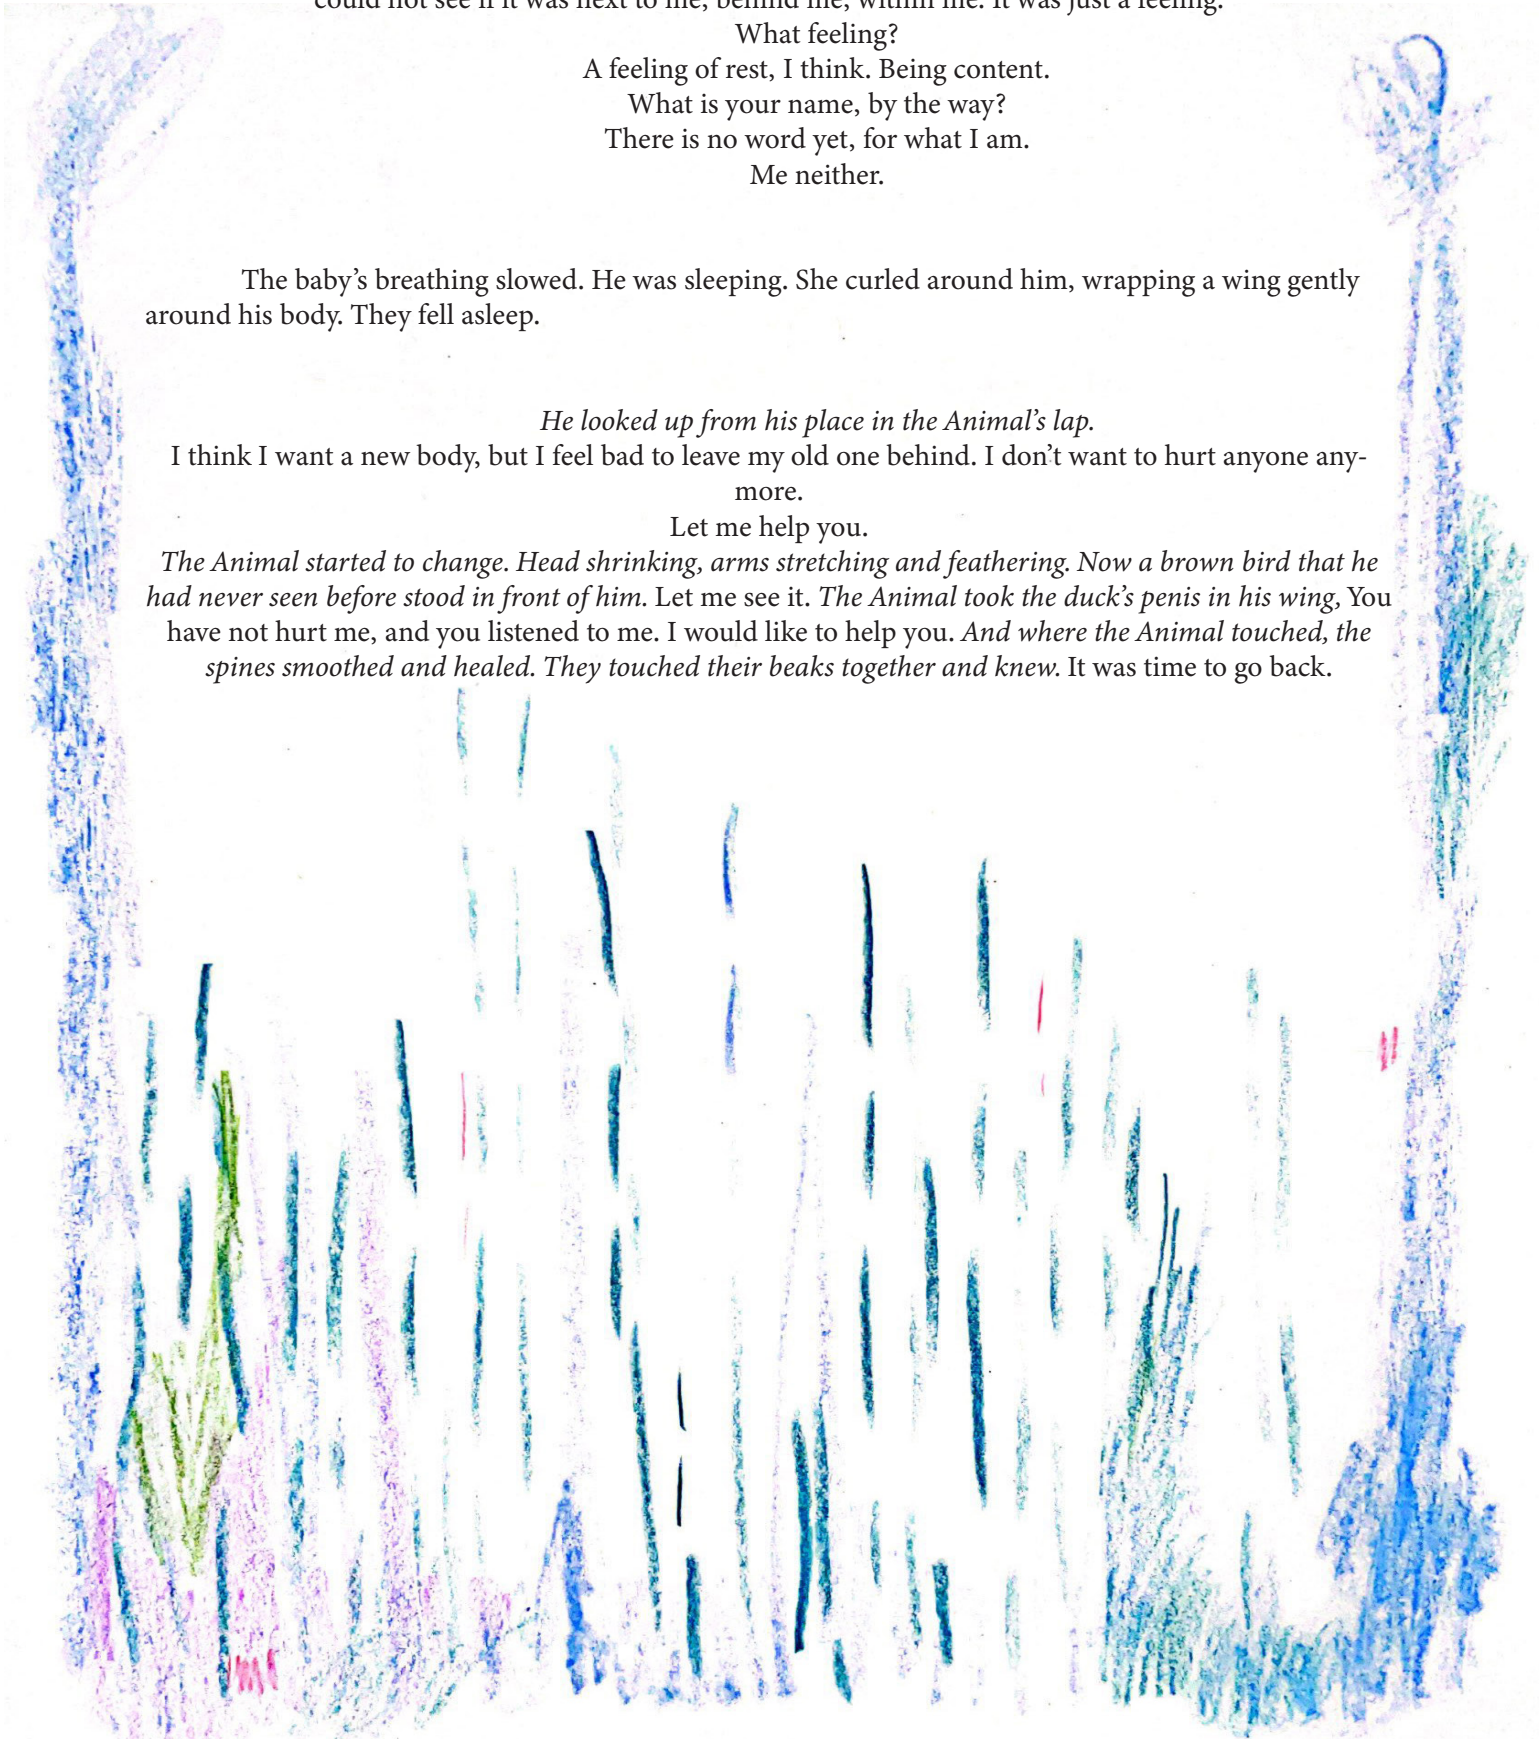 could not see if it was next to me, behind me, within me. It was just a feeling.
What feeling?
A feeling of rest, I think. Being content.
What is your name, by the way?
There is no word yet, for what I am.
Me neither.
The baby’s breathing slowed. He was sleeping. She curled around him, wrapping a wing gently
around his body. They fell asleep.
He looked up from his place in the Animal’s lap.
I think I want a new body, but I feel bad to leave my old one behind. I don’t want to hurt anyone any-
more.
Let me help you.
The Animal started to change. Head shrinking, arms stretching and feathering. Now a brown bird that he
had never seen before stood in front of him. Let me see it. The Animal took the duck’s penis in his wing, You
have not hurt me, and you listened to me. I would like to help you. And where the Animal touched, the
spines smoothed and healed. They touched their beaks together and knew. It was time to go back.